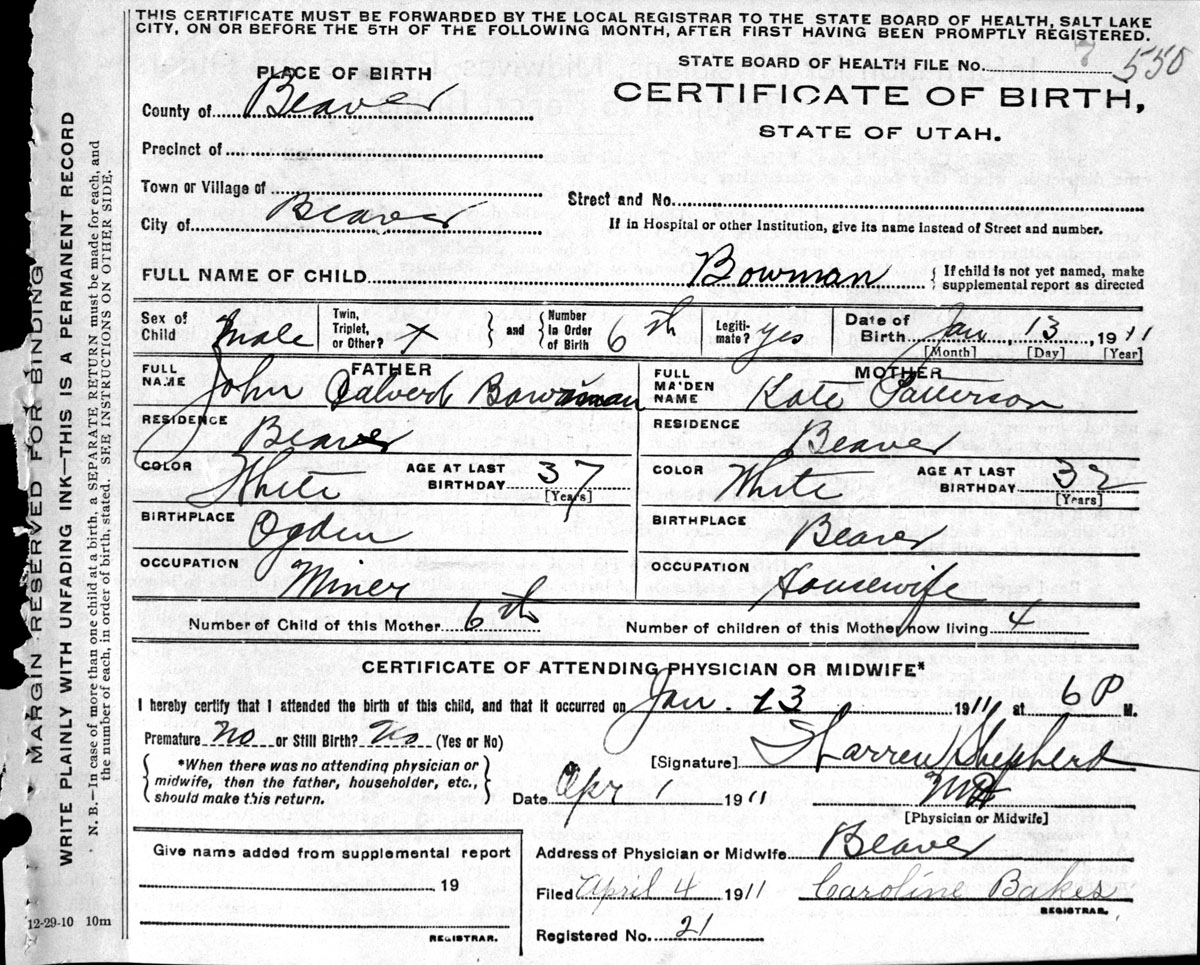 THIS CERTIFICATE MUST BE FORWARDED BY THE LOCAL REGISTRAR TO THE STATE BOARD OF HEALTH, SALT LAKE
CITY, ON OR BEFORE THE 5TH OF THE FOLLOWING MONTH, AFTER FIRST HAVING BEEN PROMPTLY REGISTERED.
PLACE OF BIRTH
STATE BOARD OF HEALTH FILE NO. 550
County of Beaver
CERTIFICATE OF BIRTH,
STATE OF UTAH.
Precinct of
Town or Village of
Street and No.
City of Beaver
If in Hospital or other Institution, give its name instead of Street and number.
FULL NAME OF CHILD Bowman { If child is not yet named, make
supplemental report as directed
Sex of Child Male
Twin, Triplet, or Other? { and } Number in Order of Birth 6th
Legitimate? Yes
Date of Birth Jan 13, 1911
[Month] [Day] [Year]
FATHER
FULL NAME John Calvert Bowman
MOTHER
FULL MAIDEN NAME Kate Patterson
RESIDENCE Beaver
RESIDENCE Beaver
COLOR White AGE AT LAST BIRTHDAY 37 [Years]
COLOR White AGE AT LAST BIRTHDAY 32 [Years]
BIRTHPLACE Ogden
BIRTHPLACE Beaver
OCCUPATION Miner
OCCUPATION Housewife
Number of Child of this Mother 6th Number of children of this Mother now living 4
CERTIFICATE OF ATTENDING PHYSICIAN OR MIDWIFE*
I hereby certify that I attended the birth of this child, and that it occurred on Jan. 13 1911 at 6 P M.
Premature No or Still Birth? No (Yes or No)
[Signature] Warren Shepherd
{ *When there was no attending physician or
midwife, then the father, householder, etc.,
should make this return. }
Date Apr 1 1911 MD
[Physician or Midwife]
Give name added from supplemental report
, 19
REGISTRAR.
Address of Physician or Midwife Beaver
Filed April 4 1911 Caroline Baker
REGISTRAR.
Registered No. 21
MARGIN RESERVED FOR BINDING
WRITE PLAINLY WITH UNFADING INK—THIS IS A PERMANENT RECORD
N. B.—In case of more than one child at a birth, a SEPARATE RETURN must be made for each, and
the number of each, in order of birth, stated. SEE INSTRUCTIONS ON OTHER SIDE.
12-29-10 10m